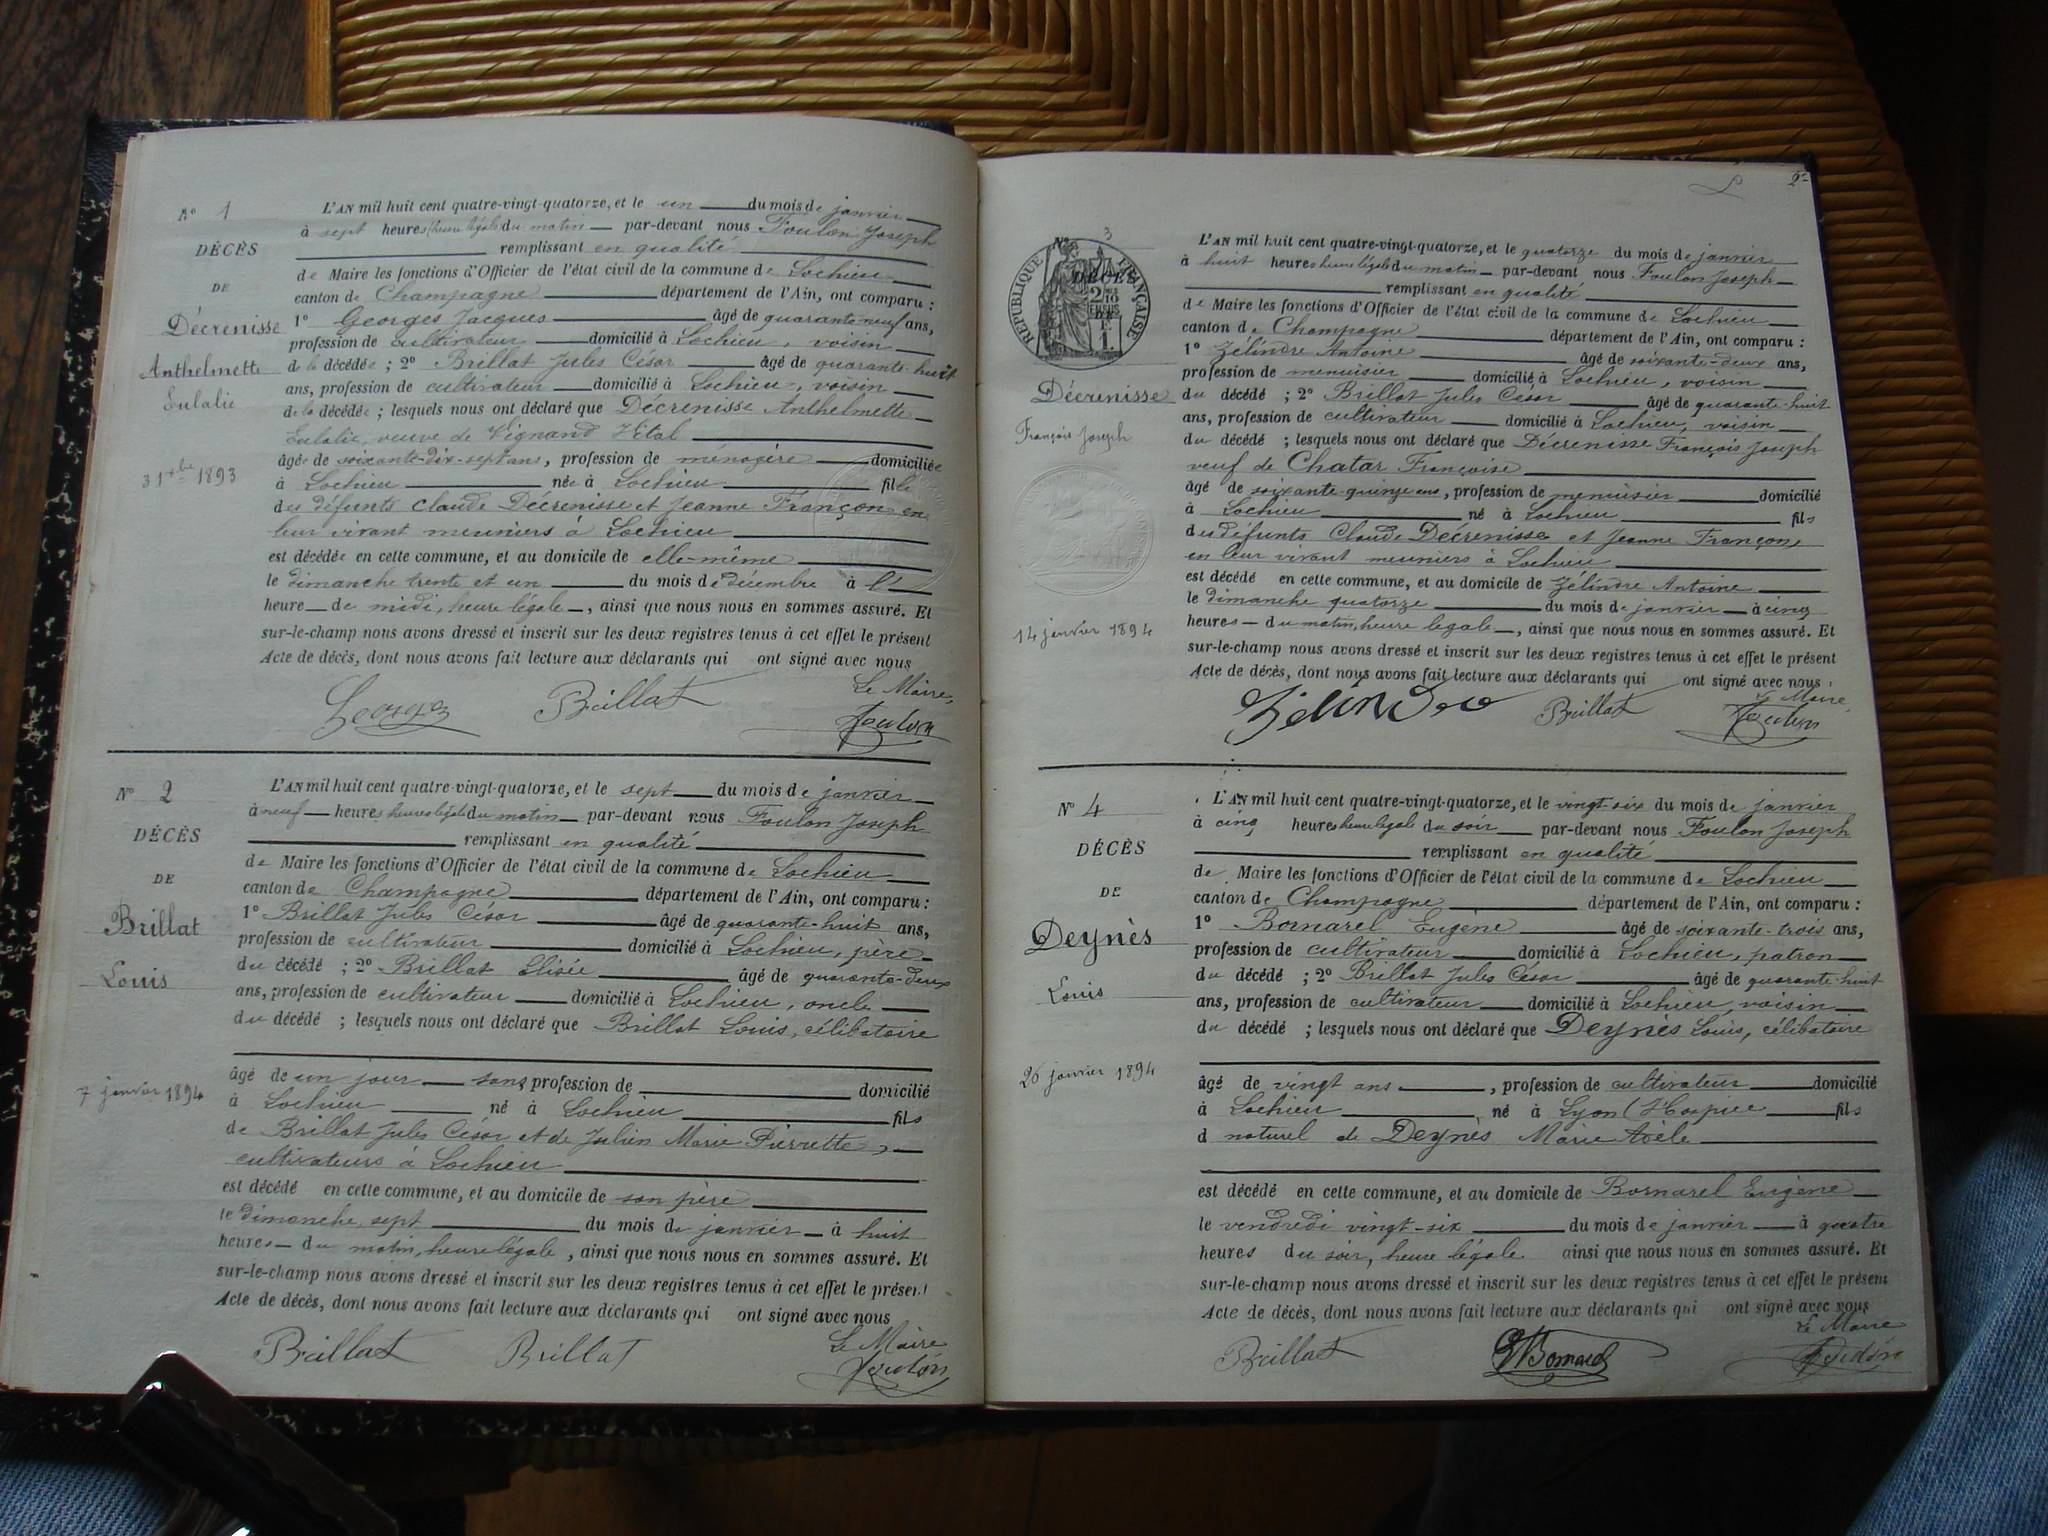 N° 1
DÉCÈS
DE
Décrenisse
Anthelmette
Eulalie
31 xbe 1893
L'AN mil huit cent quatre-vingt-quatorze, et le un du mois de janvier
à sept heures (heure légale) du matin par-devant nous Foulon Joseph
remplissant en qualité
de Maire les fonctions d'Officier de l'état civil de la commune de Lochieu
canton de Champagne département de l'Ain, ont comparu :
1° Georges Jacques âgé de quarante-neuf ans,
profession de cultivateur domicilié à Lochieu, voisin
de la décédée ; 2° Brillat Jules César âgé de quarante-huit
ans, profession de cultivateur domicilié à Lochieu, voisin
de la décédée ; lesquels nous ont déclaré que Décrenisse Anthelmette
Eulalie, veuve de Vignand Vital
âgée de soixante-dix-sept ans, profession de ménagère domiciliée
à Lochieu née à Lochieu fille
des défunts Claude Décrenisse et Jeanne Françon en
leur vivant meuniers à Lochieu
est décédée en cette commune, et au domicile de elle-même
le dimanche trente et un du mois de décembre à l'
heure de midi, heure légale, ainsi que nous nous en sommes assuré. Et
sur-le-champ nous avons dressé et inscrit sur les deux registres tenus à cet effet le présent
Acte de décès, dont nous avons fait lecture aux déclarants qui ont signé avec nous
Le Maire,
Georges Brillat Foulon
N° 2
DÉCÈS
DE
Brillat
Louis
7 janvier 1894
L'AN mil huit cent quatre-vingt-quatorze, et le sept du mois de janvier
à neuf heures heure légale du matin par-devant nous Foulon Joseph
remplissant en qualité
de Maire les fonctions d'Officier de l'état civil de la commune de Lochieu
canton de Champagne département de l'Ain, ont comparu :
1° Brillat Jules César âgé de quarante-huit ans,
profession de cultivateur domicilié à Lochieu, père
du décédé ; 2° Brillat Elisée âgé de quarante-deux
ans, profession de cultivateur domicilié à Lochieu, oncle
du décédé ; lesquels nous ont déclaré que Brillat Louis, célibataire
âgé de un jour sans profession de domicilié
à Lochieu né à Lochieu fils
de Brillat Jules César et de Julien Marie Pierrette,
cultivateurs à Lochieu
est décédé en cette commune, et au domicile de son père
le dimanche sept du mois de janvier à huit
heures du matin, heure légale, ainsi que nous nous en sommes assuré. Et
sur-le-champ nous avons dressé et inscrit sur les deux registres tenus à cet effet le présent
Acte de décès, dont nous avons fait lecture aux déclarants qui ont signé avec nous
Le Maire
Brillat Brillat Foulon
2
N° 3
RÉPUBLIQUE FRANÇAISE
DÉCÈS
2/10 EN SUS
1 F.
Décrenisse
François Joseph
14 janvier 1894
L'AN mil huit cent quatre-vingt-quatorze, et le quatorze du mois de janvier
à huit heures heure légale du matin par-devant nous Foulon Joseph
remplissant en qualité
de Maire les fonctions d'Officier de l'état civil de la commune de Lochieu
canton de Champagne département de l'Ain, ont comparu :
1° Zélindre Antoine âgé de soixante-deux ans,
profession de menuisier domicilié à Lochieu, voisin
du décédé ; 2° Brillat Jules César âgé de quarante-huit
ans, profession de cultivateur domicilié à Lochieu, voisin
du décédé ; lesquels nous ont déclaré que Décrenisse François Joseph
veuf de Chatar Françoise
âgé de soixante-quinze ans, profession de menuisier domicilié
à Lochieu né à Lochieu fils
des défunts Claude Décrenisse et Jeanne Françon,
en leur vivant meuniers à Lochieu
est décédé en cette commune, et au domicile de Zélindre Antoine
le dimanche quatorze du mois de janvier à cinq
heures du matin, heure légale, ainsi que nous nous en sommes assuré. Et
sur-le-champ nous avons dressé et inscrit sur les deux registres tenus à cet effet le présent
Acte de décès, dont nous avons fait lecture aux déclarants qui ont signé avec nous
Le Maire,
Zélindre Brillat Foulon
N° 4
DÉCÈS
DE
Deynès
Louis
26 janvier 1894
L'AN mil huit cent quatre-vingt-quatorze, et le vingt-six du mois de janvier
à cinq heures heure légale du soir par-devant nous Foulon Joseph
remplissant en qualité
de Maire les fonctions d'Officier de l'état civil de la commune de Lochieu
canton de Champagne département de l'Ain, ont comparu :
1° Bornarel Eugène âgé de soixante-trois ans,
profession de cultivateur domicilié à Lochieu, patron
du décédé ; 2° Brillat Jules César âgé de quarante-huit
ans, profession de cultivateur domicilié à Lochieu, voisin
du décédé ; lesquels nous ont déclaré que Deynès Louis, célibataire
âgé de vingt ans, profession de cultivateur domicilié
à Lochieu né à Lyon (Hospice fils
d naturel de Deynès Marie Adèle
est décédé en cette commune, et au domicile de Bornarel Eugène
le vendredi vingt-six du mois de janvier à quatre
heures du soir, heure légale ainsi que nous nous en sommes assuré. Et
sur-le-champ nous avons dressé et inscrit sur les deux registres tenus à cet effet le présent
Acte de décès, dont nous avons fait lecture aux déclarants qui ont signé avec nous
Le Maire
Brillat Bornarel Foulon